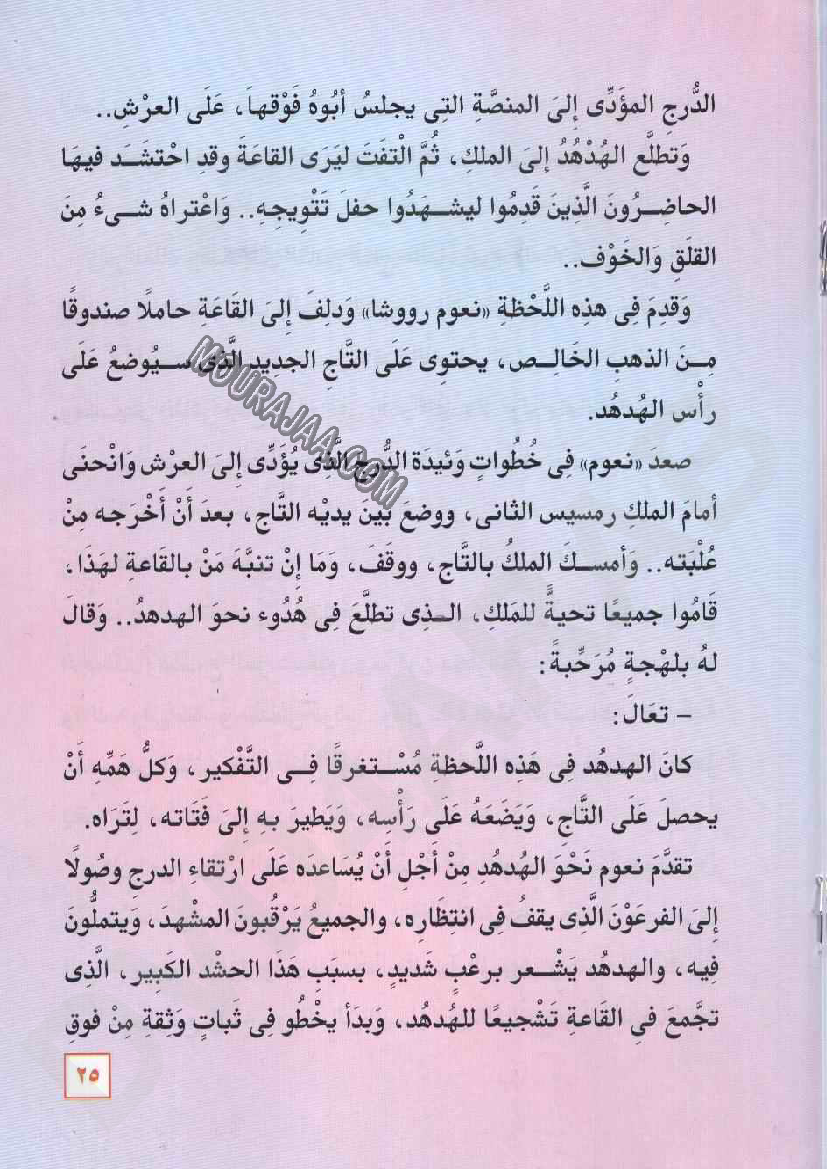 الدُّرجِ المؤَدِّى إلىَ المنصَّةِ التِى يجلسُ أبُوهُ فَوْقهاَ، عَلَى العرْشِ..
وَتطلَّع الهُدْهُدُ إلىَ الملكِ، ثُمَّ الْتفَتَ ليَرَى القاعَةَ وقدِ احْتشَـد فيهَا
الحاضِـرُونَ الَّذِينَ قَدِمُوا ليشـهَدُوا حفلَ تَتْوِيجِهِ.. وَاعْتراهُ شىءُ مِنَ
القلَقِ وَالخَوْف..
وَقدِمَ فِى هذِهِ اللَّحْظةِ «نعوم رووشا» وَدلِفَ إلىَ القَاعَةِ حاملًا صندوقًا
مِـنَ الذهبِ الخَالِـصِ، يحتوِى عَلَى التَّاجِ الجديدِ الَّذى سـيُوضعُ عَلَى
رأْس الهُدهُد.
صعدَ «نعوم» فِى خُطُواتٍ وَئيدَة الدُّرجِ الَّذِى يُؤَدِّى إلىَ العرْش وَانْحنَى
أمامَ الملكِ رمسيس الثانى، ووضعَ بينَ يديْه التَّاج، بعدَ أَنْ أخْرَجه مِنْ
عُلْبَته.. وَأمسـكَ الملكُ بالتَّاج، ووقَفَ، وَمَا إنْ تنبَّهَ مَنْ بالقاعةِ لهَذَا،
قَامُوا جميعًا تحيةً للمَلكِ، الـذِى تطلَّعَ فِى هُدُوء نحوَ الهدهدُ.. وَقالَ
لهُ بلهْجةٍ مُرَحِّبةً:
– تعَالَ:
كانَ الهدهُد فِى هَذِه اللَّحظة مُسْـتغرقًا فِـى التَّفْكير، وَكلُّ همِّهِ أَنْ
يحصلَ عَلَى التَّاجِ، وَيَضَعَهُ عَلَى رَأْسِه، وَيَطيرَ بهِ إلىَ فَتَاته، لِتَرَاه.
تقدَّمَ نعوم نَحْوَ الهُدهُدِ مِنْ أجْلِ أَنْ يُسَاعدَه عَلَى ارْتقاءِ الدرجِ وصُولًا
إلىَ الفرعَوْنَ الَّذِى يقفُ فِى انتِظَارِه، والجميعُ يَرْقُبونَ المشْهدَ، وَيتملُّونَ
فِيه، والهدهُد يَشْـعر برعْبٍ شَديدٍ، بسبَبِ هَذَا الحشْد الكَبِير، الَّذِى
تجْمعَ فىِ القَاعةِ تَشْجيعًا للهُدهُد، وَبدَأ يخْطُو فِى ثَباتٍ وَثقةِ مِنْ فوقِ
٢٥
MOURAJAA.COM